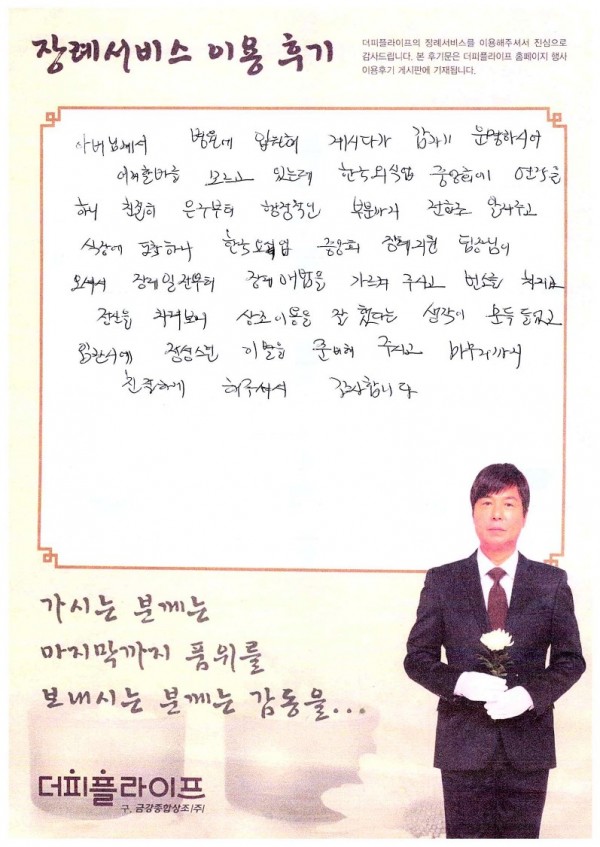 장례서비스 이용 후기
더피플라이프의 장례서비스를 이용해주셔서 진심으로
감사드립니다. 본 후기문은 더피플라이프 홈페이지 행사
이용후기 게시판에 기재됩니다.
아버님께서 병원에 입원해 계시다가 갑자기 운명하시어
어찌할바를 모르고 있는데 한국외식업 중앙회에 연락을
하니 친절히 운구부터 행정적인 부분까지 전화로 알려주고
식장에 도착하니 한국외식업 중앙회 장례지원 팀장님이
오셔서 장례일정부터 장례예법을 가르쳐 주시고 빈소를 차리고
전산을 차려보니 상조이용을 잘 했다는 생각이 문득 들었고
입관시에 정성스런 이별을 준비해 주시고 마무리까지
친절하게 해주셔서 감사합니다
가시는 분께는
마지막까지 품위를
보내시는 분께는 감동을...
더피플라이프
구. 금강종합상조(주)